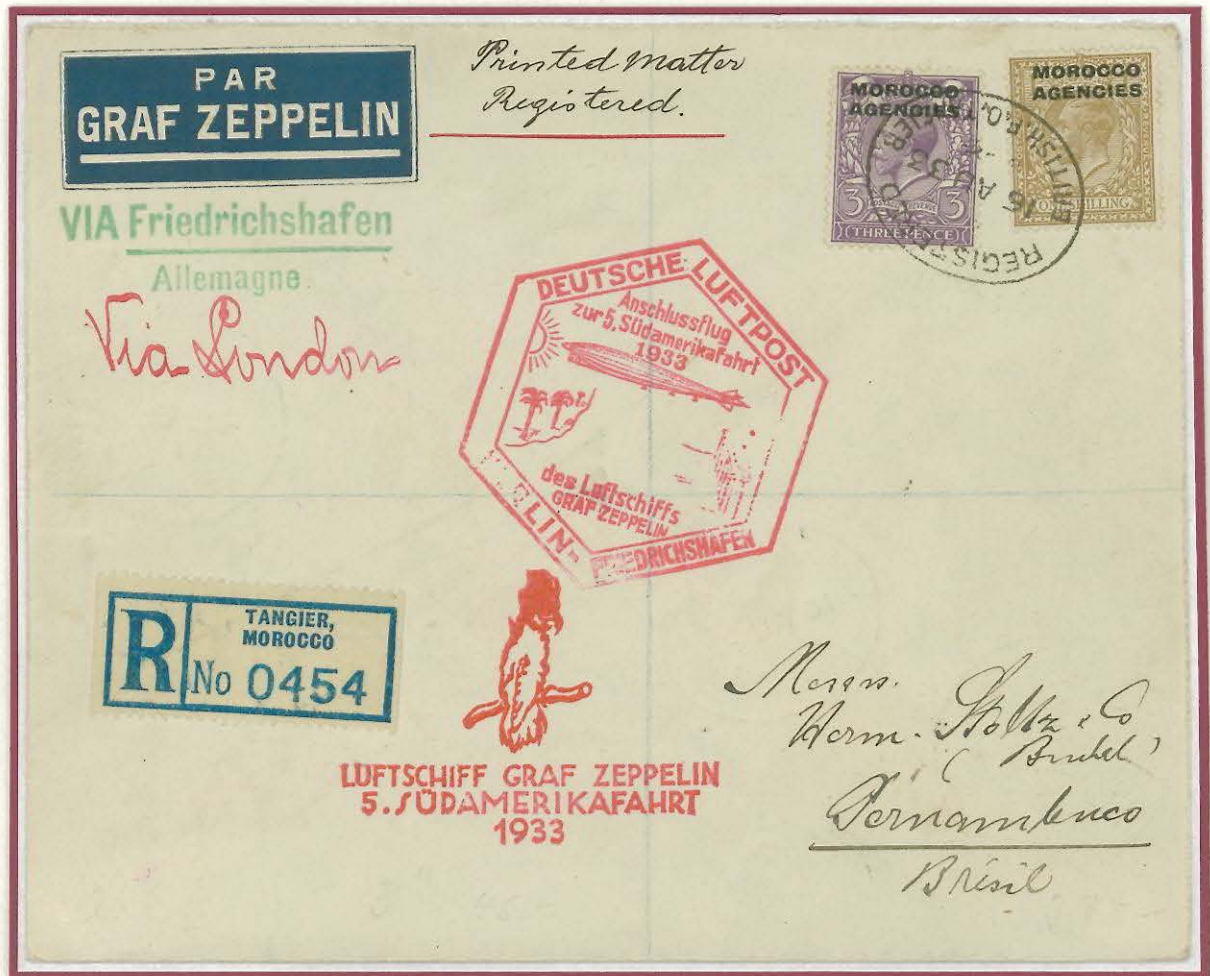 PAR
GRAF ZEPPELIN
Printed Matter
Registered.
MOROCCO
AGENCIES
3 POSTAGE REVENUE 3
(THREEPENCE)
MOROCCO
AGENCIES
ONE SHILLING
REGISTERED
15 AU 33
BRITISH P.O.
VIA Friedrichshafen
Allemagne
Via London
DEUTSCHE LUFTPOST
Anschlussflug
zur 5. Südamerikafahrt
1933
des Luftschiffs
GRAF ZEPPELIN
FRIEDRICHSHAFEN
R
TANGIER,
MOROCCO
No 0454
LUFTSCHIFF GRAF ZEPPELIN
5. SÜDAMERIKAFAHRT
1933
Messrs.
Herm. Stoltz & Co
Pernambuco
Brésil